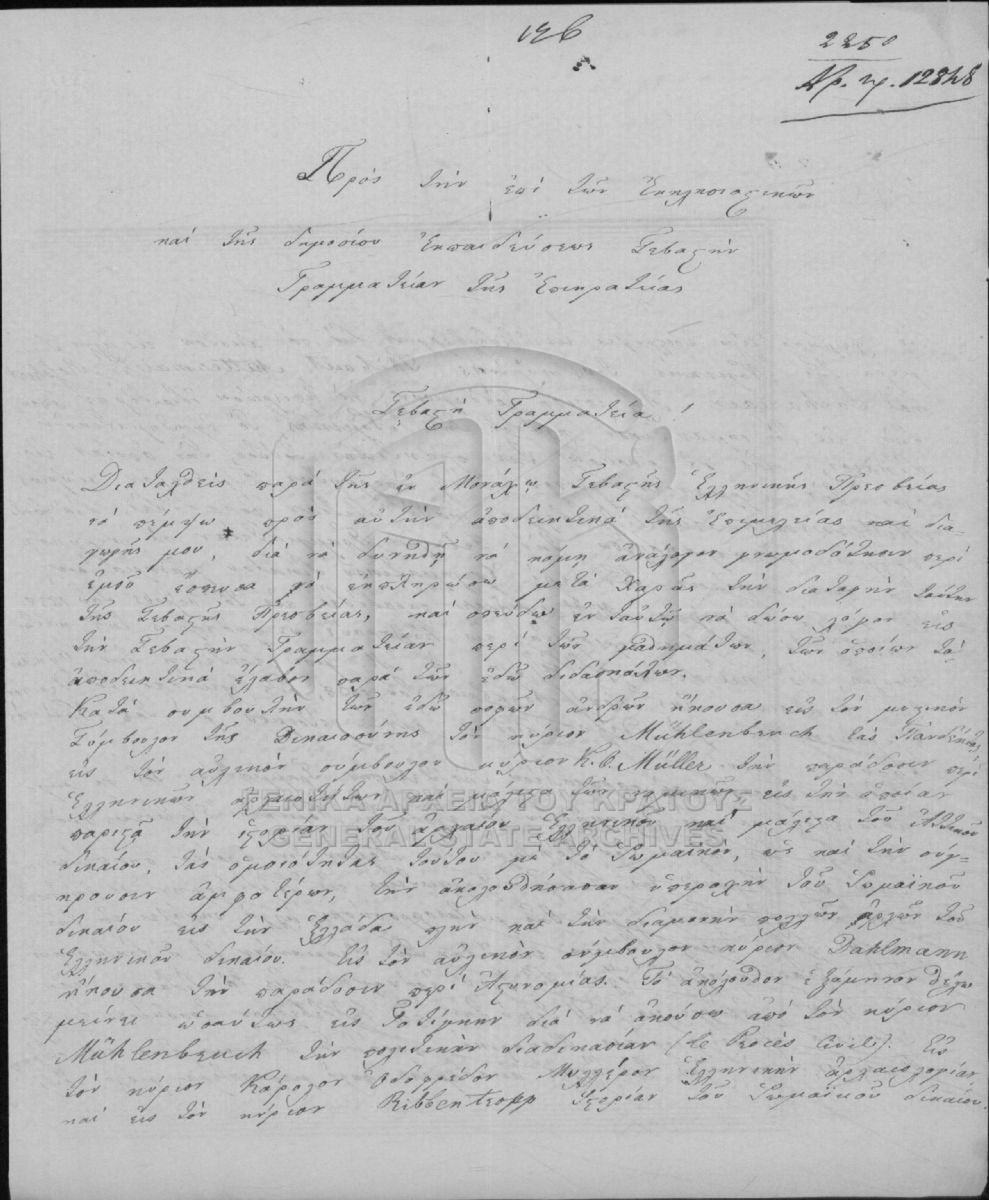 196
2250
Αρ. πρ. 12848
Πρός τὴν ἐπὶ τῶν Ἐκκλησιαστικῶν
καὶ τῆς δημοσίου ἐκπαιδεύσεως Σεβαστὴν
Γραμματείαν τῆς Ἐπικρατείας
Σεβαστὴ Γραμματεία!
Διαταχθεὶς παρὰ τῆς ἐν Μονάχῳ Σεβαστῆς Ἑλληνικῆς Πρεσβείας
νὰ πέμψω πρὸς αὐτὴν ἀποδεικτικὰ τῆς ἐπιμελείας καὶ δια-
γωγῆς μου, διὰ νὰ δυνηθῇ νὰ κάμῃ ἀνάλογον γνωμοδότησιν περὶ
ἐμοῦ ἔσπευσα νὰ ἐκπληρώσω μετὰ χαρᾶς τὴν διαταγὴν ταύτην
τῆς Σεβαστῆς Πρεσβείας, καὶ σπεύδω ἐν ταὐτῷ νὰ δώσω λόγον εἰς
τὴν Σεβαστὴν Γραμματείαν περὶ τῶν μαθημάτων, τῶν ὁποίων τὰ
ἀποδεικτικὰ ἔλαβον παρὰ τῶν ἐδῶ διδασκάλων.
Κατὰ συμβουλὴν τῶν ἐδῶ σοφῶν ἀνδρῶν ἤκουσα εἰς τὸν μυστικὸν
Σύμβουλον τῆς Δικαιοσύνης τὸν κύριον Mühlenbruch τὰς Πανδέκτας,
εἰς τὸν αὐλικὸν σύμβουλον κύριον K. O. Müller τὴν παράδοσιν περὶ
Ἑλληνικῶν ἀρχαιοτήτων καὶ μάλιστα τῶν νομικῶν, εἰς τὴν ὁποίαν
παριστᾷ τὴν ἱστορίαν τοῦ ἀρχαίου Ἑλληνικοῦ καὶ μάλιστα τοῦ Ἀττικοῦ
δικαίου, τὰς ὁμοιότητας τούτου μὲ τὸ Ῥωμαϊκόν, ὡς καὶ τὴν σύγ-
κρουσιν ἀμφοτέρων, τὴν ἀκολουθήσασαν ὑπεροχὴν τοῦ Ῥωμαϊκοῦ
δικαίου εἰς τὴν Ἑλλάδα πλὴν καὶ τὴν διαμονὴν πολλῶν ἀρχῶν τοῦ
Ἑλληνικοῦ δικαίου. Εἰς τὸν αὐλικὸν σύμβουλον κύριον Dahlmann
ἤκουσα τὴν παράδοσιν περὶ Ἀστυνομίας. Τὸ ἀκόλουθον ἑξάμηνον θέλω
μείνει ὡσαύτως εἰς Γοτίγκην διὰ νὰ ἀκούσω ἀπὸ τὸν κύριον
Mühlenbruch τὴν πολιτικὴν διαδικασίαν (le Procès Civile). Εἰς
τὸν κύριον Κάρολον Ὀδοφρέδον Μυλλέρον Ἑλληνικὴν ἀρχαιολογίαν
καὶ εἰς τὸν κύριον Ribbentropp Ἱστορίαν τοῦ Ῥωμαϊκοῦ δικαίου.
ΓΕΝΙΚΑ ΑΡΧΕΙΑ ΤΟΥ ΚΡΑΤΟΥΣ
GENERAL STATE ARCHIVES